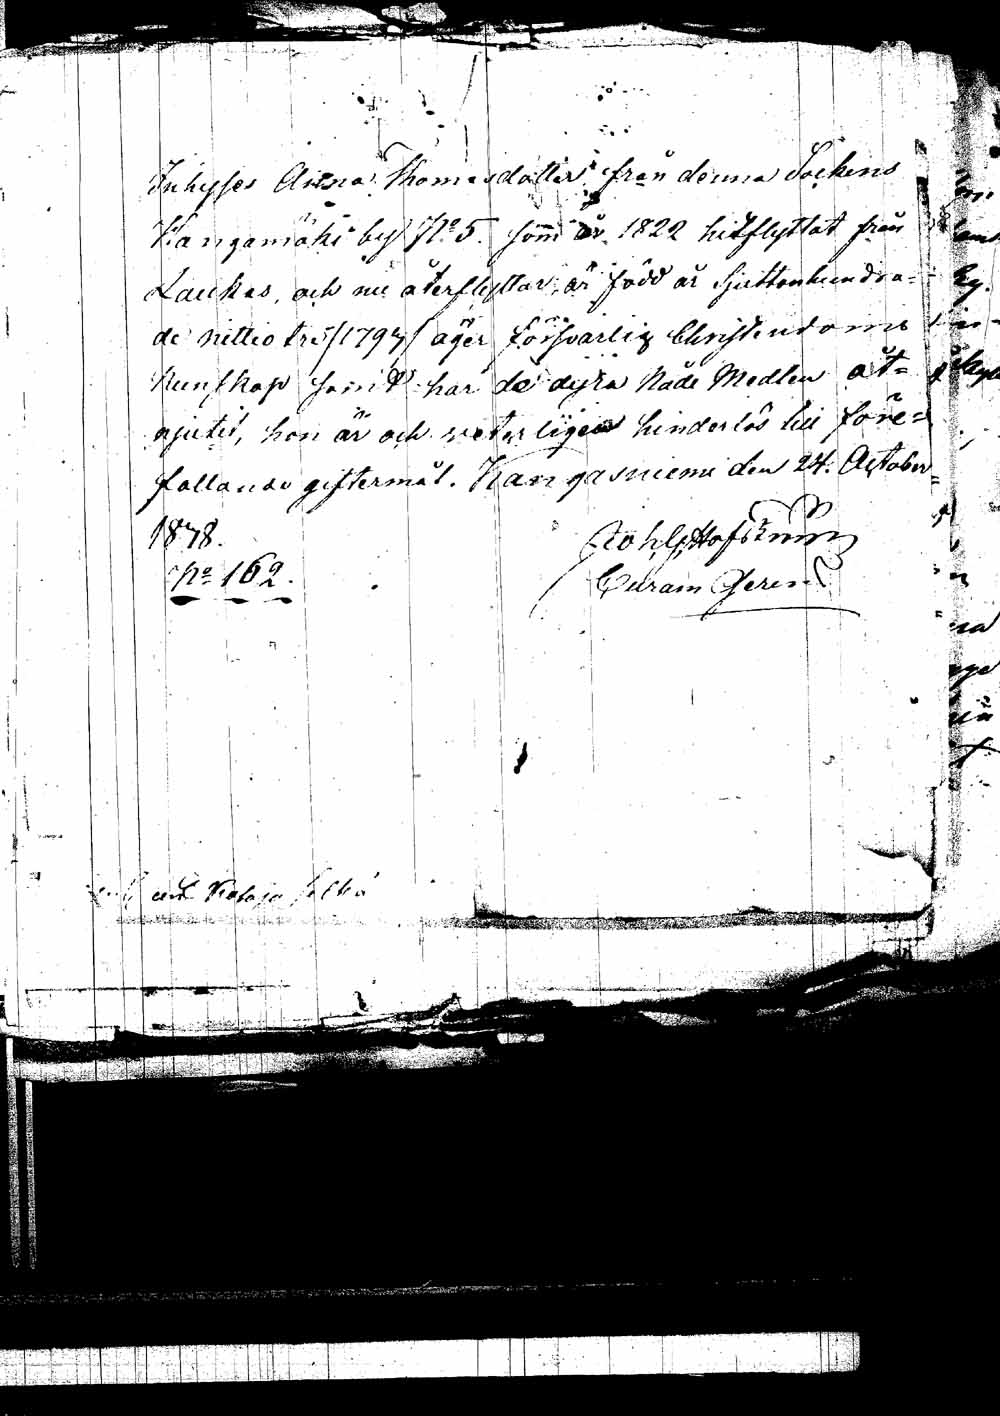 Inhyses Anna Thomasdotter från denna Sockens
Kangamäki by No 5. som år 1822 hitflyttat från
Laukas, och nu återflyttar, är född år Sjuttonhundra-
de nittio tre /1793/ äger försvarlig Christendoms
kunskap samt har de dyra Nåde Medlen åt=
njutit, hon är och veterligen hinderlös till före=
fallande giftermål. Kangasniemi den 24. October
1838.
No 162.
Joh. G. Hofström
Curam Gerens